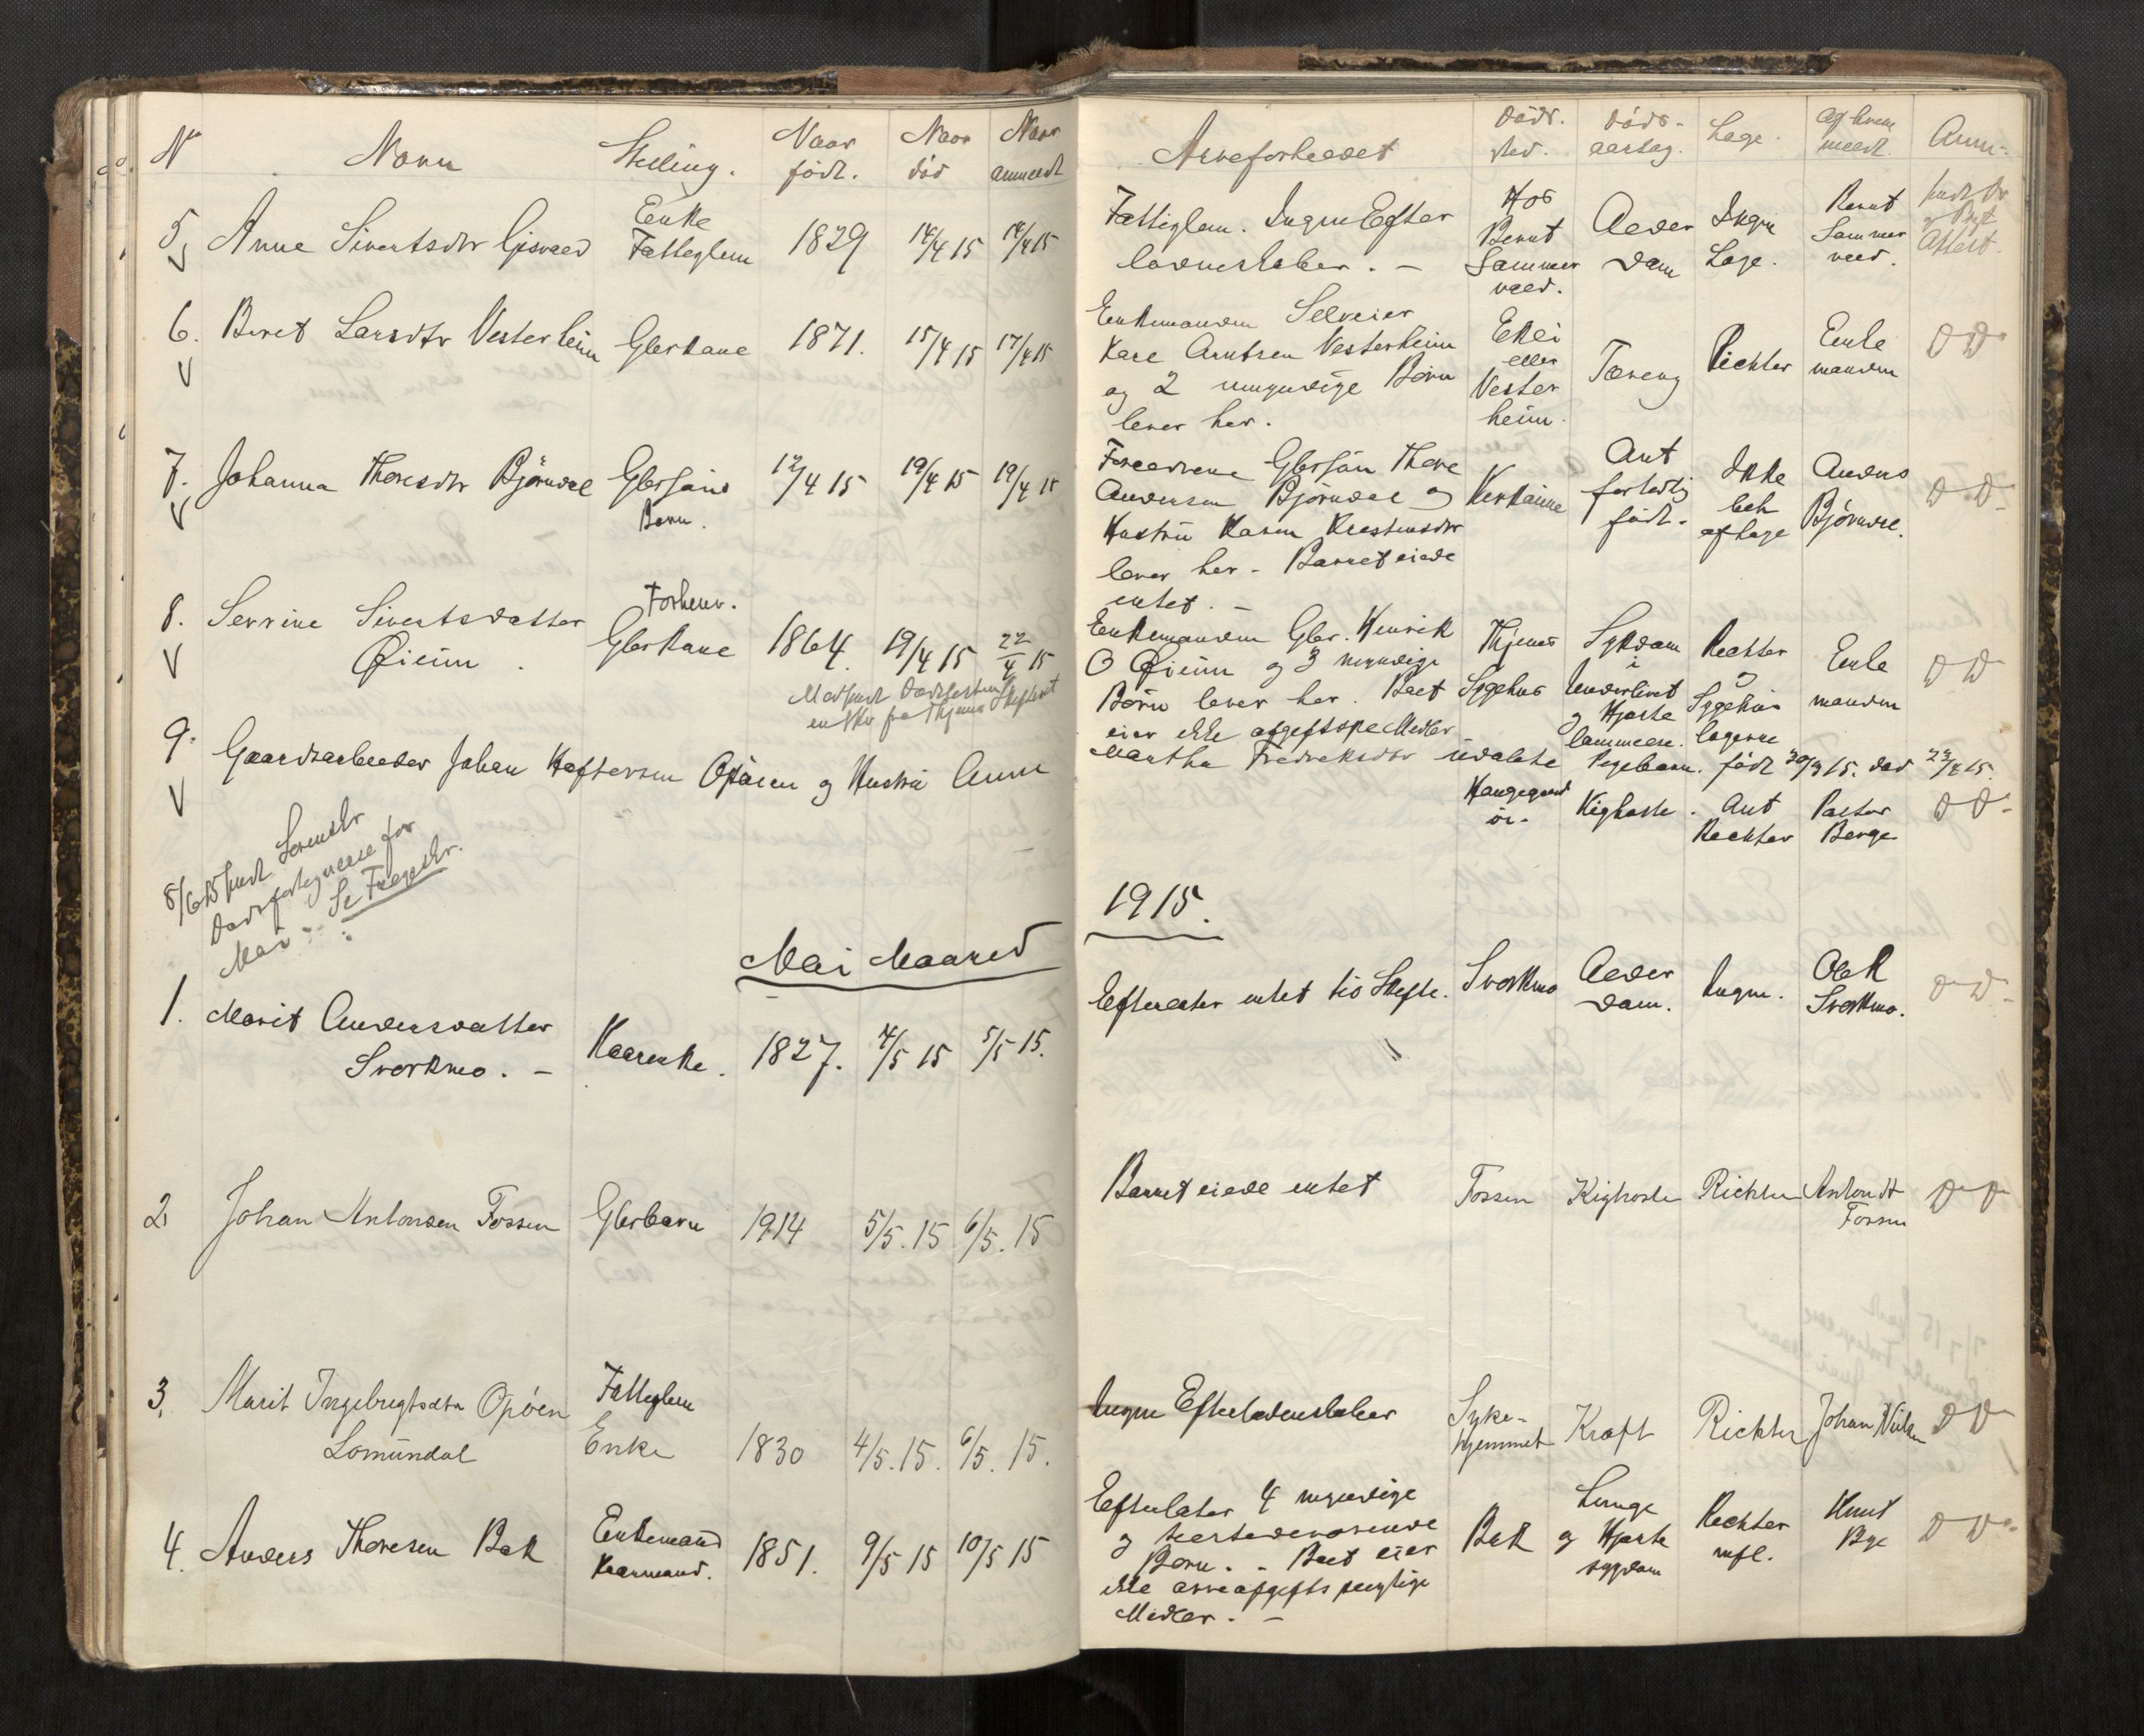 N Navn Stilling. Naar født. Naar død Naar anmeldt Arveforholdet Døds. sted. Døds- aarsag. Læge. Af hvem meldt. Anm:
5 Anne Sivertsdtr Gjsvold Enke Fattiglem 1829 14/4 15 14/4 15
Fattiglem. Ingen Efter
ladenskaber. –
Hos Berut Sammer vold. Alder dom Ingen Læge. Berut Sammer vold. Attest.
6. Beret Larsdtr Vesterheim Gbrkone 1871. 15/4 15 17/4 15
V
Enkemanden Selveier
Karl Arntsen Vesterheim
og 2 umyndige Børn
lever her.
Ekli eller Vester heim. Tæring Richter Enke manden D D
7. Johanna Thoresdtr Bjørndal Gbrsøns Barn. 12/4 15 19/4 15 19/4 15
V
Forældrene Gbrsøn Thore
Andersen Bjørndal og
Hustru Karen Kristensdtr
lever her – Barnet eiede
intet. –
Ant for tidlig født. Ikke beh af læge Anders Bjørndal. D D
8. Serrine Sivertsdatter
Øieim.
V
Forhenv.
Gbrkone 1864. 19/4 15 22/4 15
Enkemanden Gbr. Henrik
O Øieim og 3 myndige
Børn lever her. Boet
eier ikke afgiftspl Midler
Sygehus Sykdom i Underlivet og Hjerte lammelse. Richter og Sygehus lægerne Enke manden D D
9. Gaardsarbeider Johan Opøien og Hustru Anne
V
Martha Fredriksdtr udøbte Pigebarn. født 30/3 15. død 23/4 15.
Kighoste. Ant Richter Pastor Berge D D
8/6 15 sendt Lensmdtr
Dødsfortegnelse for
Mai
Mai Maaned 1915.
1. Marit Andersdatter
Svorkmo. –
Kaarenke. 1827. 4/5 15 5/5 15.
Efterlater intet til Skifte. Svorkmo Alder dom. Ingen. Ole K Svorkmo. D D
2. Johan Antonsen Fossen Gbrbarn 1914 5/5. 15 6/5. 15
Barnet eiede intet Fossen Kighoste Richter Anton A Fossen D D
3. Marit Ingebrigtsdtr Opøien
Lomundal
Fattiglem
Enke 1830 4/5. 15. 6/5. 15.
Ingen Efterladenskaber Syke- hjemmet Kræft Richter Johan D D
4. Anders Thoresen Bak Enkemand Kaarmand. 1851. 9/5 15 10/5 15
Efterlater 4 myndige
og tilstedeværende
Børn. – Boet eier
ikke arveafgifts pligtige
Midler. –
Bak Lunge og Hjerte sygdom Richter mfl. Knut Bye D D